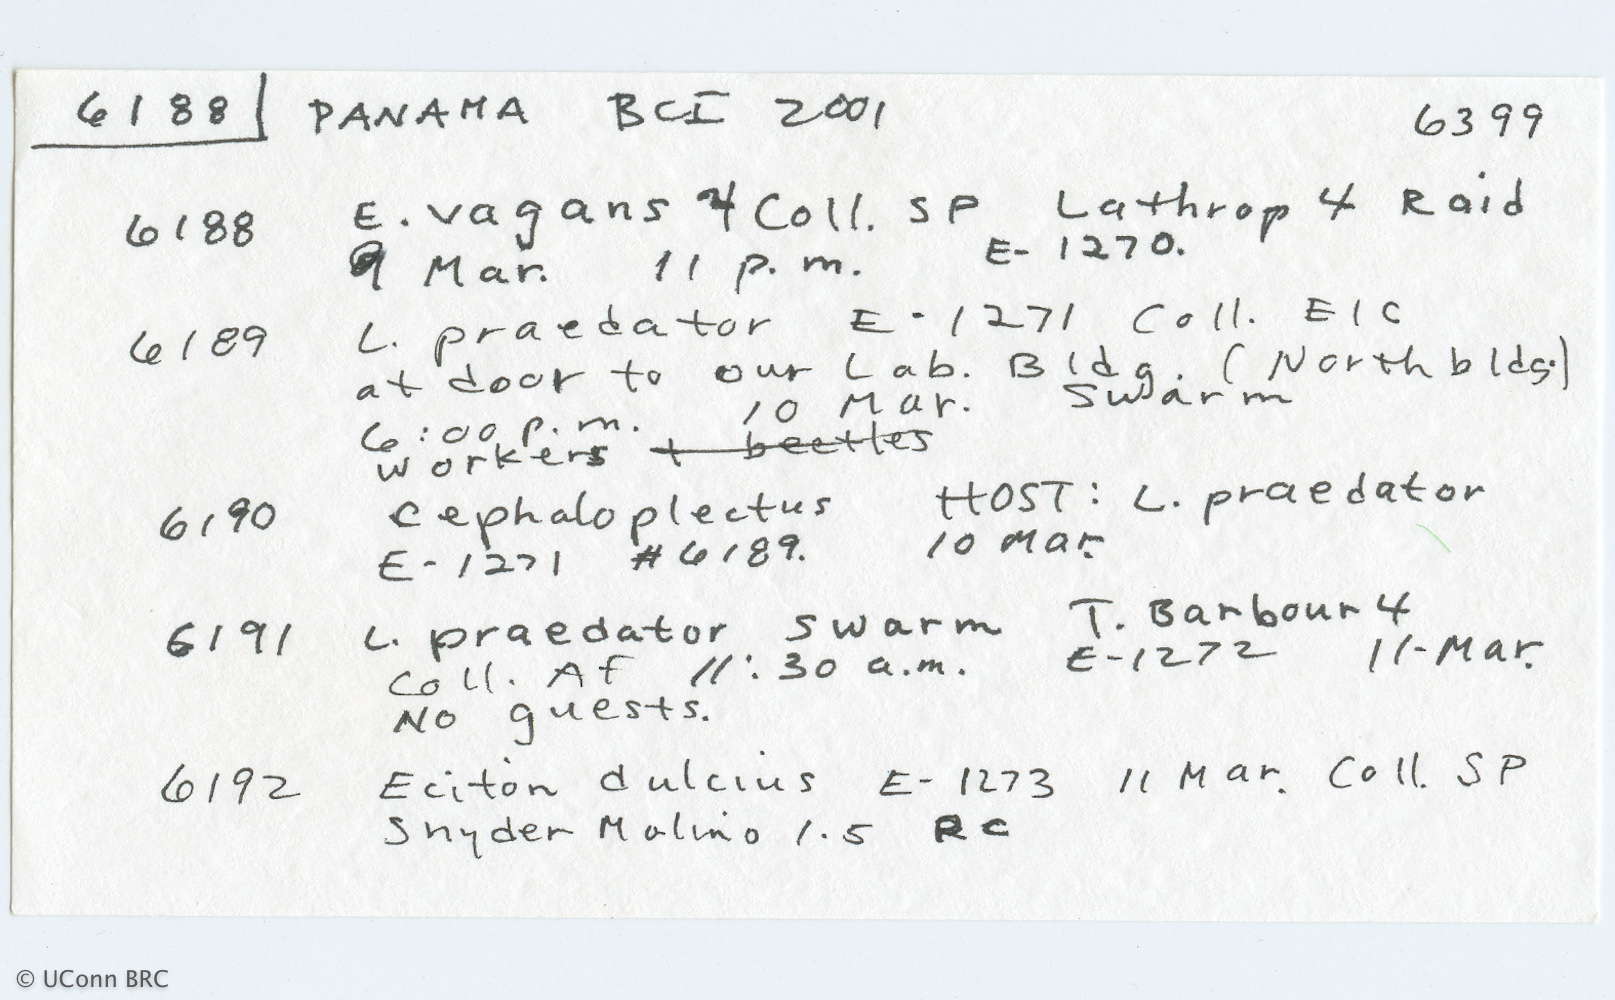 6188 PANAMA BCI 2001 6399
6188 E. vagans Coll. SP Lathrop 4 Raid
9 Mar. 11 p.m. E-1270.
6189 L. praedator E-1271 Coll. EIC
at door to our Lab. Bldg. (North bldg.)
6:00 p.m. 10 Mar. Swarm
workers + beetles
6190 Cephaloplectus HOST: L. praedator
E-1271 #6189. 10 Mar.
6191 L. praedator swarm T. Barbour 4
Coll. AF 11:30 a.m. E-1272 11-Mar.
No guests.
6192 Eciton dulcius E-1273 11 Mar. Coll. SP
Snyder Molino 1.5 RC
© UConn BRC